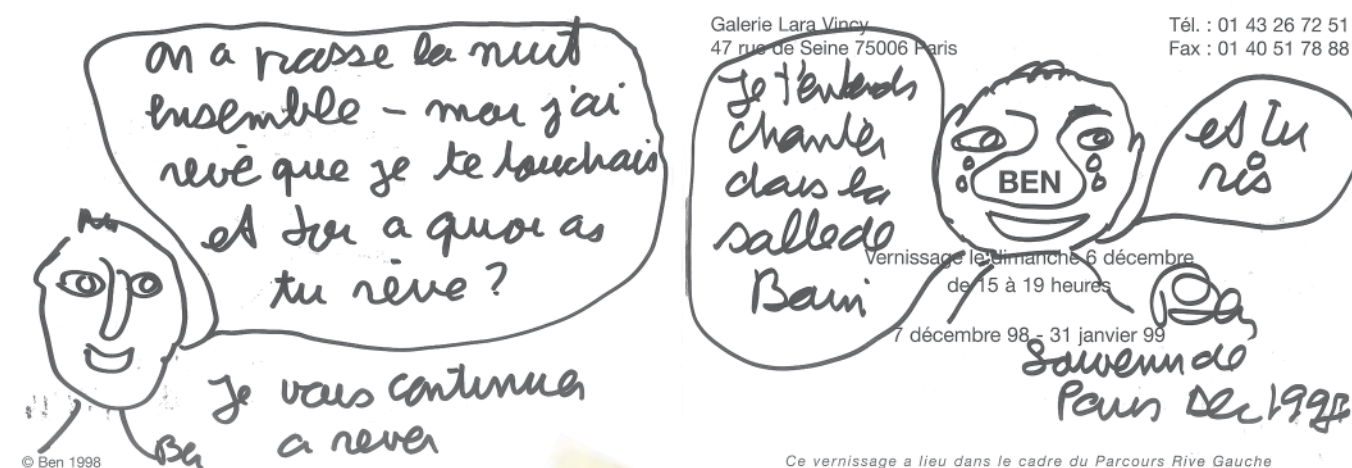 on a passe la nuit
ensemble - moi j'ai
revé que je te touchais
et toi a quoi as
tu rêve ?
Je vais continuer
a rever
Ben
© Ben 1998
Galerie Lara Vincy
47 rue de Seine 75006 Paris
Tél. : 01 43 26 72 51
Fax : 01 40 51 78 88
Je t'entends
chanter
dans la
salle de
Bain
BEN
et tu
ris
Vernissage le dimanche 6 décembre
de 15 à 19 heures
7 décembre 98 - 31 janvier 99
Ben
Souvenir de
Paris Dec 1998
Ce vernissage a lieu dans le cadre du Parcours Rive Gauche